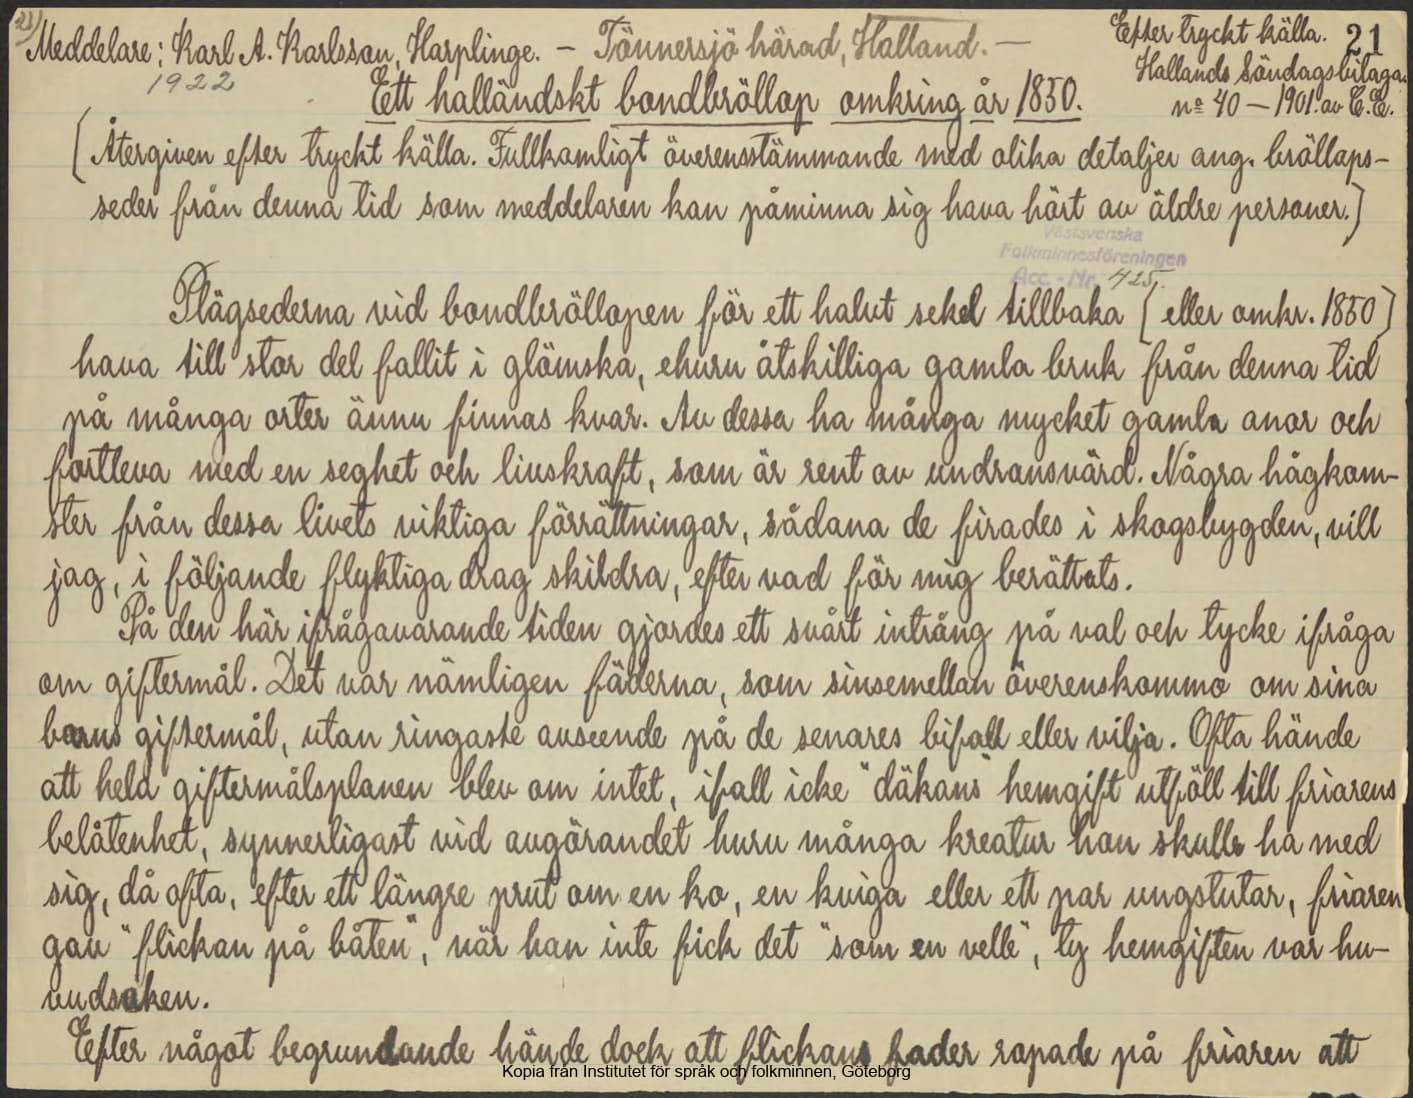 21)
Meddelare: Karl A. Karlsson, Harplinge. – Tönnersjö härad, Halland. –
Efter tryckt källa. 21
1922
Hallands Söndagsbilaga.
nº 40 – 1901. av C.E.
Ett halländskt bondbröllop omkring år 1850.
[Återgiven efter tryckt källa. Fullkomligt överensstämmande med olika detaljer ang. bröllops-
seder från denna tid som meddelaren kan påminna sig hava hört av äldre personer.]
Västsvenska
Folkminnesföreningen
Acc.-Nr. 425.
Plägsederna vid bondbröllopen för ett halvt sekel tillbaka [eller omkr. 1850]
hava till stor del fallit i glömska, ehuru åtskilliga gamla bruk från denna tid
på många orter ännu finnas kvar. Av dessa ha många mycket gamla anor och
fortleva med en seghet och livskraft, som är rent av undransvärd. Några hågkom-
ster från dessa livets viktiga förrättningar, sådana de firades i skogsbygden, vill
jag, i följande flyktiga drag skildra, efter vad för mig berättats.
På den här ifrågavarande tiden gjordes ett svårt intrång på val och tycke ifråga
om giftermål. Det var nämligen fäderna, som sinsemellan överenskommo om sina
barns giftermål, utan ringaste avseende på de senares bifall eller vilja. Ofta hände
att hela giftermålsplanen blev om intet, ifall icke "däkans" hemgift utföll till friarens
belåtenhet, synnerligast vid avgörandet huru många kreatur hon skulle ha med
sig, då ofta, efter ett längre prut om en ko, en kviga eller ett par ungstutar, friaren
gav "flickan på båten", när han inte fick det "som en velle", ty hemgiften var hu-
vudsaken.
Eefter något begrundande hände dock att flickans fader ropade på friaren att
Kopia från Institutet för språk och folkminnen, Göteborg